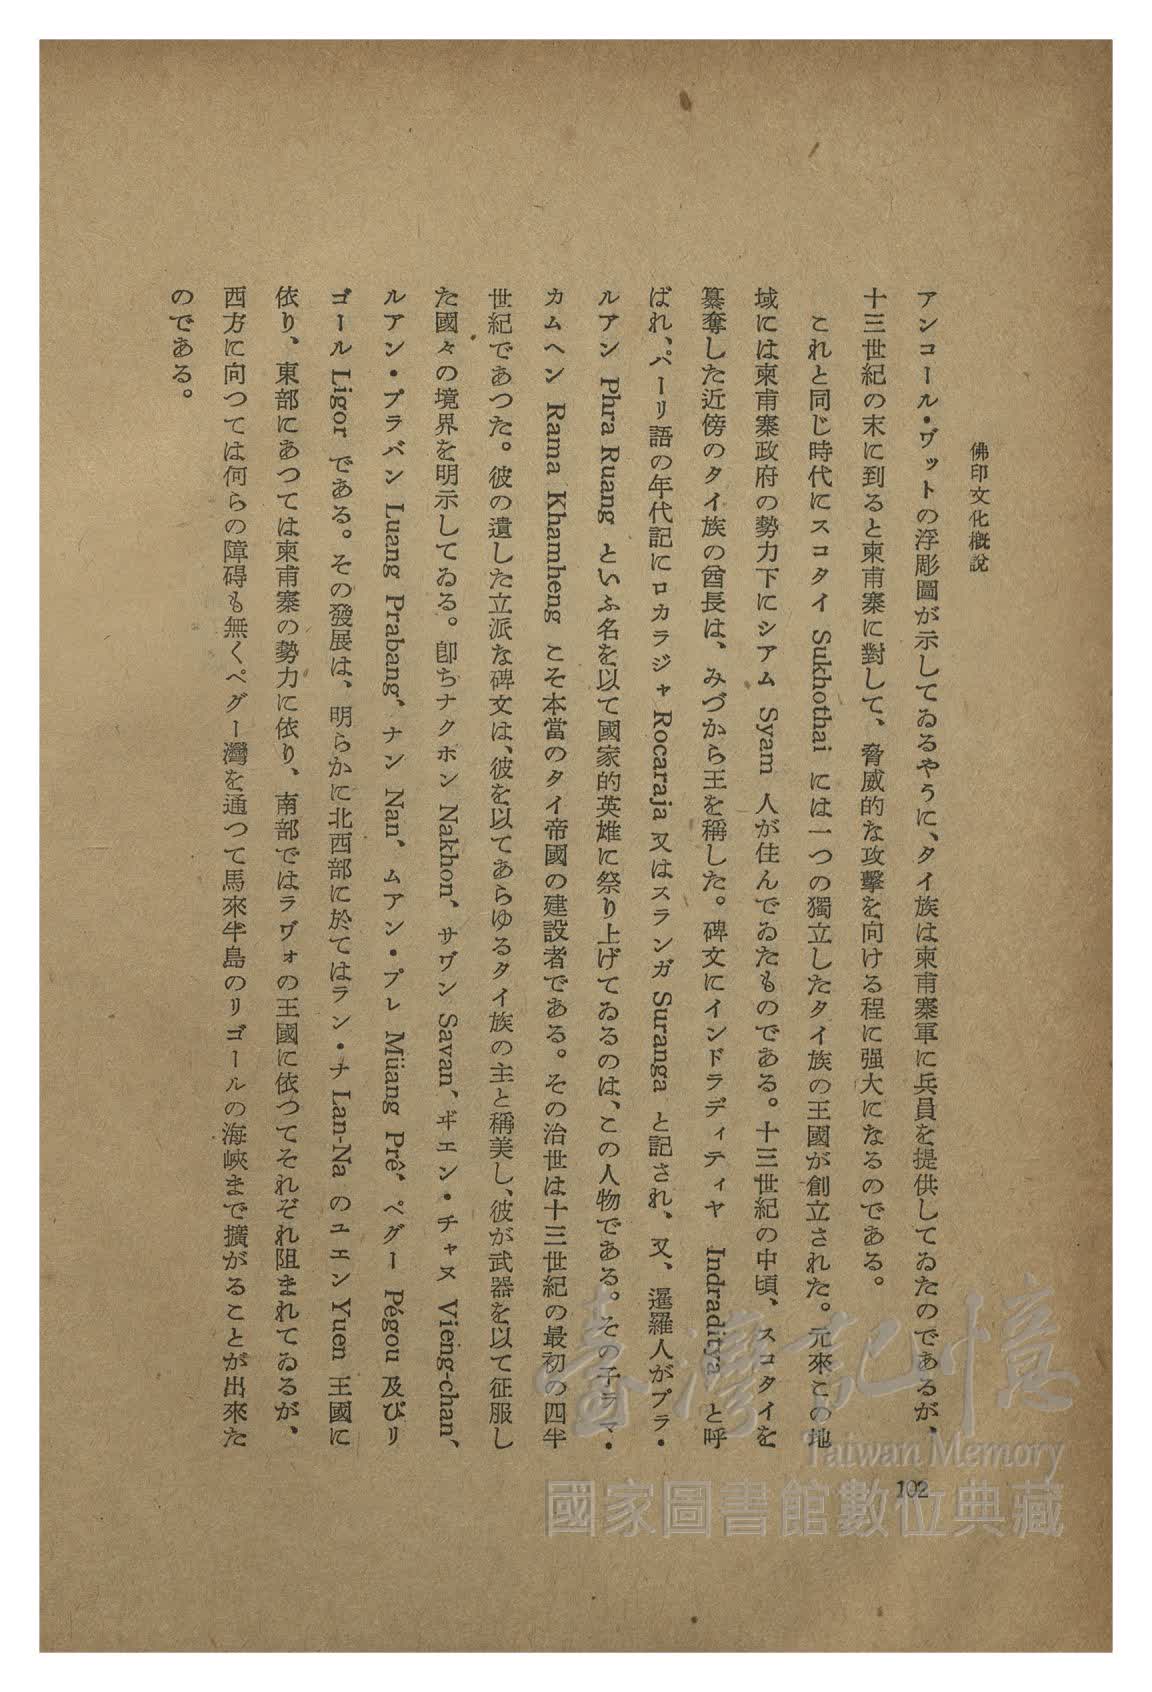 佛印文化概說
アンコール・ヴットの浮彫圖が示してゐるやうに、タイ族は柬甫寨軍に兵員を提供してゐたのであるが、
十三世紀の末に到ると柬甫寨に對して、脅威的な攻擊を向ける程に强大になるのである。
これと同じ時代にスコタイ Sukhothai には一つの獨立したタイ族の王國が創立された。元來この地
域には柬甫寨政府の勢力下にシアム Syam 人が住んでゐたものである。十三世紀の中頃、スコタイを
簒奪した近傍のタイ族の酋長は、みづから王を稱した。碑文にインドラディティヤ Indraditya と呼
ばれ、パーリ語の年代記にロカラジャ Rocaraja 又はスランガ Suranga と記され、又、暹羅人がプラ・
ルアン Phra Ruang といふ名を以て國家的英雄に祭り上げてゐるのは、この人物である。その子ラマ・
カムヘン Rama Khamheng こそ本當のタイ帝國の建設者である。その治世は十三世紀の最初の四半
世紀であつた。彼の遺した立派な碑文は、彼を以てあらゆるタイ族の主と稱美し、彼が武器を以て征服し
た國々の境界を明示してゐる。卽ちナクホン Nakhon、サヴン Savan、ヸエン・チャヌ Vieng-chan、
ルアン・プラバン Luang Prabang、ナン Nan、ムアン・プレ Müang Prê、ペグー Pégou 及びリ
ゴール Ligor である。その發展は、明らかに北西部に於てはラン・ナ Lan-Na のユエン Yuen 王國に
依り、東部にあつては柬甫寨の勢力に依り、南部ではラヴォの王國に依つてそれぞれ阻まれてゐるが、
西方に向つては何らの障碍も無くペグー灣を通つて馬來半島のリゴールの海峽まで擴がることが出來た
のである。
102
臺灣記憶
Taiwan Memory
國家圖書館數位典藏